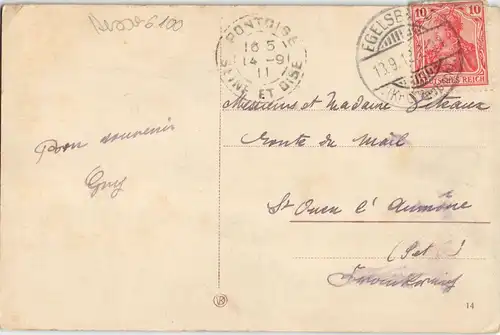 6100
PONTOISE
16 5
14 - 9
11
SEINE ET OISE
EGELSB
13.9.1
10
10
DEUTSCHES REICH
Messieurs et Madame
Route du Mail
Bon souvenir
Guy
St Ouen l'Aumône
14